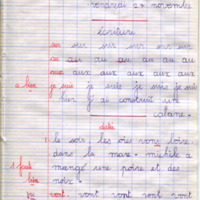 vendredi 27 novembre
écriture
sur sur sur sur sur sur
au au au au au au au
aux aux aux aux aux aux
a bien je suis je suis je suis je suis
hier j'ai construit une
cabane.
dictée
le soir, les oies vont boire
dans la mare. michèle a
mangé une poire et des
noix.
1 faute
bien
vont vont vont vont vont